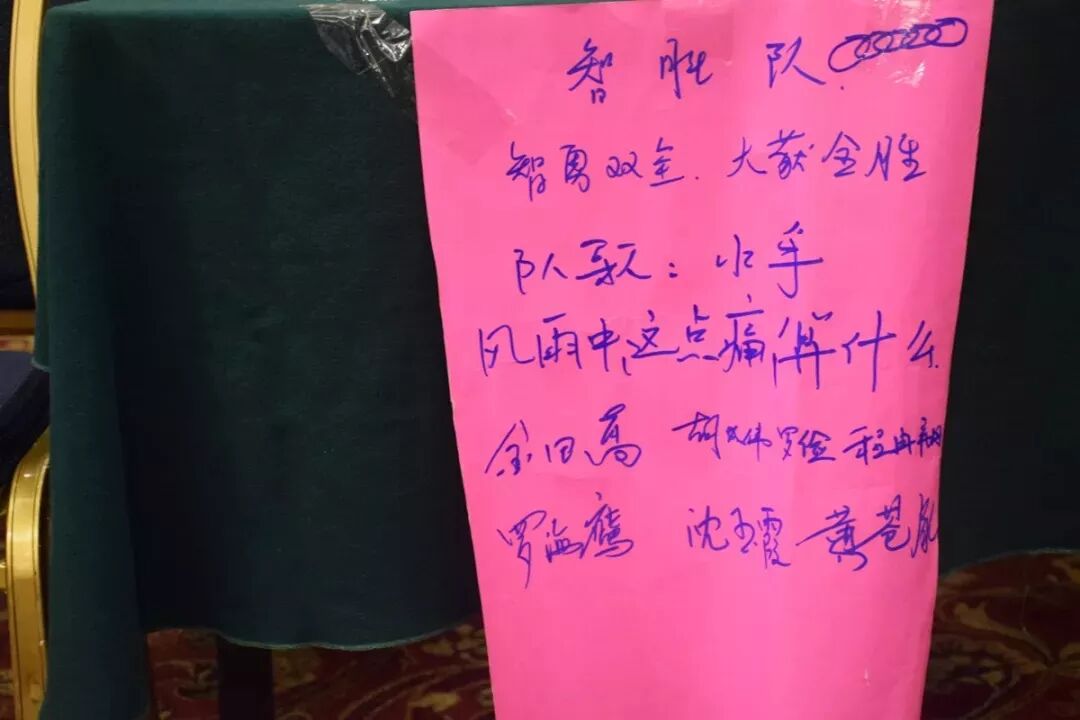 智胜队
智勇双全.大获全胜
队歌:水手
风雨中,这点痛,算什么
金田 胡 伟 罗俭 程
罗海鹰 沈玉霞 黄苍